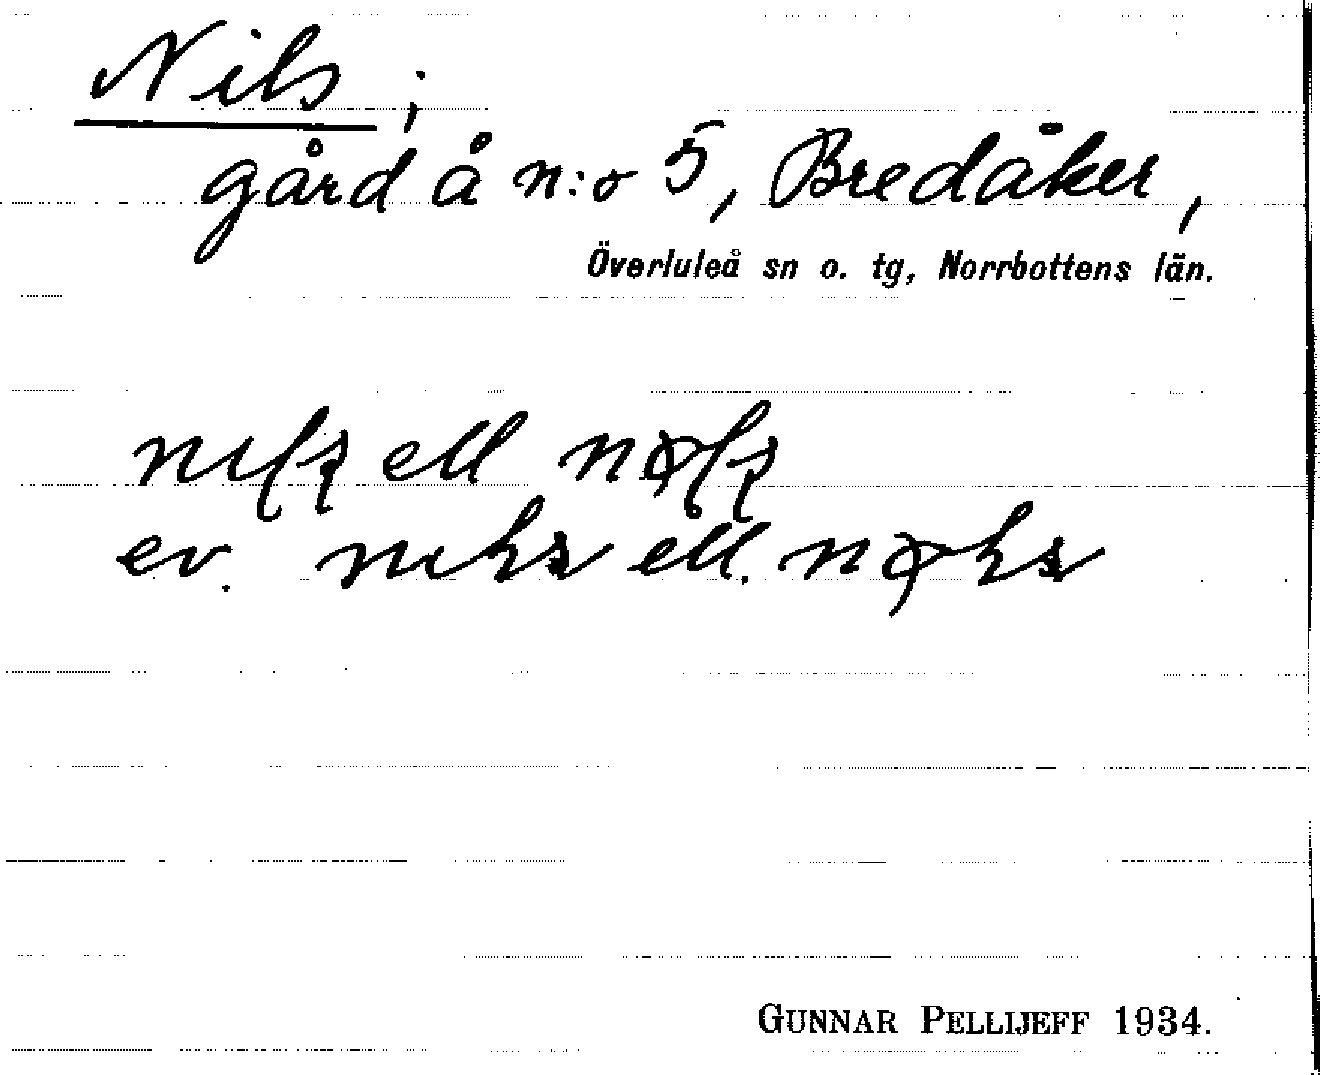 Nils;
gård å n:o 5, Bredåker,
Överluleå sn o. tg, Norrbottens län.
ell
ev. ell.
GUNNAR PELLIJEFF 1934.